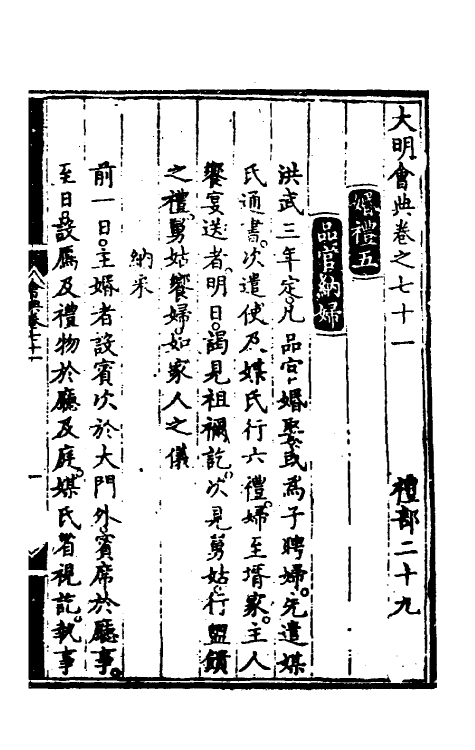 大明會典卷之七十一　禮部二十九
婚禮五
品官納婦
洪武三年定。凡品官婚娶。或爲子聘婦。先遣媒
氏通書。次遣使及媒氏行六禮。婦至壻家。主人
饗宴送者。明日。謁見祖禰訖。次見舅姑。行盥饋
之禮。舅姑饗婦。如家人之儀
納采
前一日。主婚者設賓次於大門外。賓席於廳事。
至日。設鴈及禮物於廳及庭。媒氏省視訖。執事
會典卷七十一
一